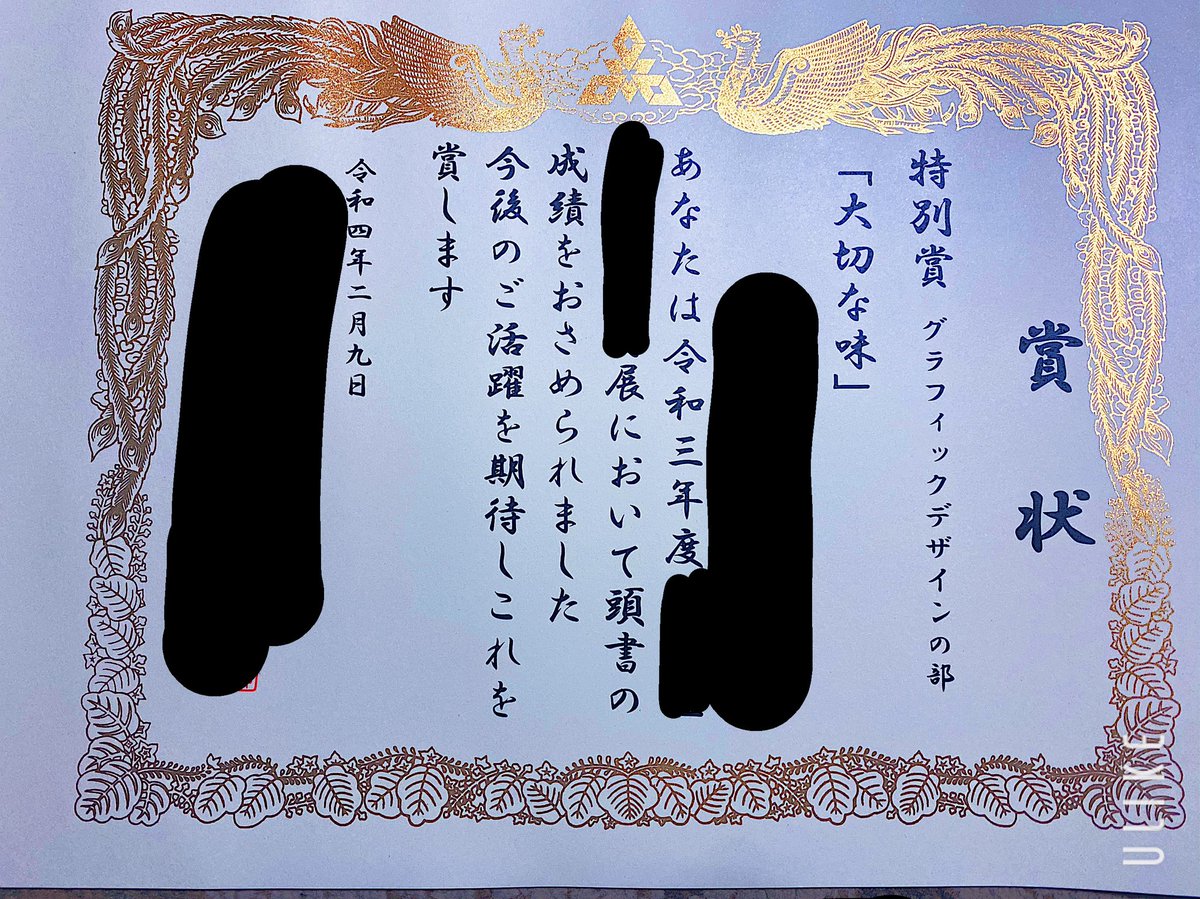 賞状
特別賞 グラフィックデザインの部
「大切な味」
あなたは令和三年度
展において頭書の
成績をおさめられました
今後のご活躍を期待しこれを
賞します
令和四年二月九日
ULIKE